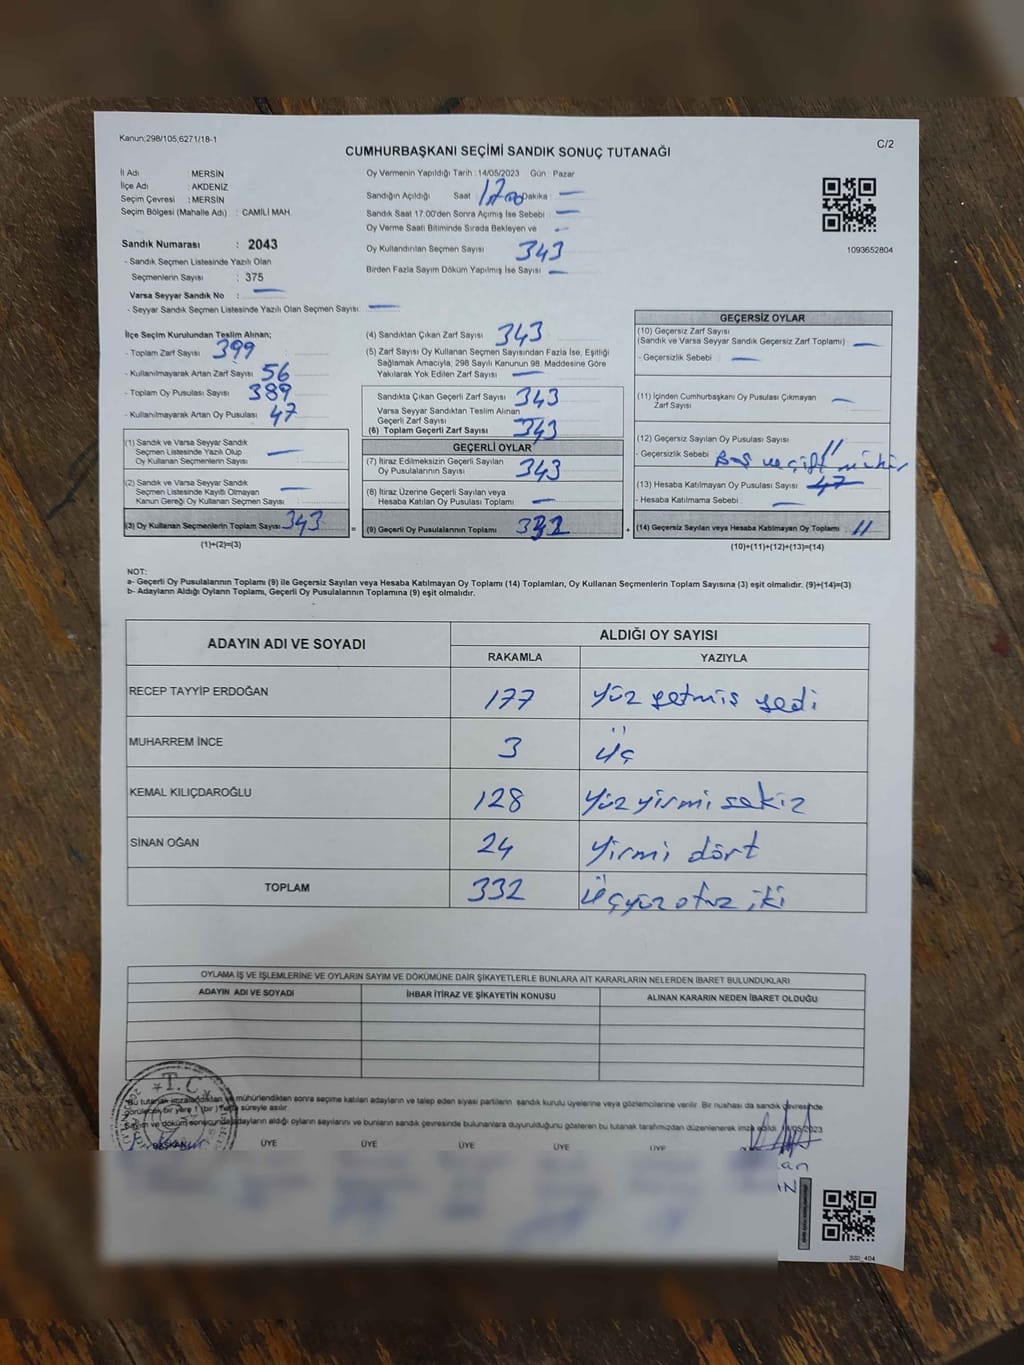 Kanun;298/105,6271/18-1
C/2
CUMHURBAŞKANI SEÇİMİ SANDIK SONUÇ TUTANAĞI
İl Adı : MERSİN
İlçe Adı : AKDENİZ
Seçim Çevresi : MERSİN
Seçim Bölgesi (Mahalle Adı) : CAMİLİ MAH.
Oy Vermenin Yapıldığı Tarih : 14/05/2023 Gün : Pazar
Sandığın Açıldığı Saat 17.00 Dakika : —
Sandık Saat 17.00'den Sonra Açımış İse Sebebi : —
Oy Verme Saati Bitiminde Sırada Bekleyen ve -
Oy Kullandırılan Seçmen Sayısı 343
Birden Fazla Sayım Döküm Yapılmış İse Sayısı —
1093652804
Sandık Numarası : 2043
- Sandık Seçmen Listesinde Yazılı Olan
Seçmenlerin Sayısı : 375
Varsa Seyyar Sandık No : —
- Seyyar Sandık Seçmen Listesinde Yazılı Olan Seçmen Sayısı: —
İlçe Seçim Kurulundan Teslim Alınan;
- Toplam Zarf Sayısı 399
- Kullanılmayarak Artan Zarf Sayısı 56
- Toplam Oy Pusulası Sayısı 389
- Kullanılmayarak Artan Oy Pusulası 47
(1) Sandık ve Varsa Seyyar Sandık
Seçmen Listesinde Yazılı Olup
Oy Kullanan Seçmenlerin Sayısı —
(2) Sandık ve Varsa Seyyar Sandık
Seçmen Listesinde Kayıtlı Olmayan
Kanun Gereği Oy Kullanan Seçmen Sayısı —
(3) Oy Kullanan Seçmenlerin Toplam Sayısı 343
(1)+(2)=(3)
(4) Sandıktan Çıkan Zarf Sayısı 343
(5) Zarf Sayısı Oy Kullanan Seçmen Sayısından Fazla İse, Eşitliği
Sağlamak Amacıyla, 298 Sayılı Kanunun 98. Maddesine Göre
Yakılarak Yok Edilen Zarf Sayısı —
Sandıkta Çıkan Geçerli Zarf Sayısı 343
Varsa Seyyar Sandıktan Teslim Alınan
Geçerli Zarf Sayısı —
(6) Toplam Geçerli Zarf Sayısı 343
GEÇERLİ OYLAR
(7) İtiraz Edilmeksizin Geçerli Sayılan
Oy Pusulalarının Sayısı 343
(8) İtiraz Üzerine Geçerli Sayılan veya
Hesaba Katılan Oy Pusulası Toplamı —
= (9) Geçerli Oy Pusulalarının Toplamı 332 +
GEÇERSİZ OYLAR
(10) Geçersiz Zarf Sayısı
(Sandık ve Varsa Seyyar Sandık Geçersiz Zarf Toplamı) —
- Geçersizlik Sebebi : —
(11) İçinden Cumhurbaşkanı Oy Pusulası Çıkmayan
Zarf Sayısı —
(12) Geçersiz Sayılan Oy Pusulası Sayısı 11
- Geçersizlik Sebebi Boş ve çift mühür
(13) Hesaba Katılmayan Oy Pusulası Sayısı 47
- Hesaba Katılmama Sebebi : —
(14) Geçersiz Sayılan veya Hesaba Katılmayan Oy Toplamı 11
(10)+(11)+(12)+(13)=(14)
NOT:
a- Geçerli Oy Pusulalarının Toplamı (9) ile Geçersiz Sayılan veya Hesaba Katılmayan Oy Toplamı (14) Toplamları, Oy Kullanan Seçmenlerin Toplam Sayısına (3) eşit olmalıdır. (9)+(14)=(3)
b- Adayların Aldığı Oyların Toplamı, Geçerli Oy Pusulalarının Toplamına (9) eşit olmalıdır.
ADAYIN ADI VE SOYADI ALDIĞI OY SAYISI
RAKAMLA YAZIYLA
RECEP TAYYİP ERDOĞAN 177 Yüz yetmiş yedi
MUHARREM İNCE 3 üç
KEMAL KILIÇDAROĞLU 128 Yüz yirmi sekiz
SİNAN OĞAN 24 Yirmi dört
TOPLAM 332 üçyüz otuz iki
OYLAMA İŞ VE İŞLEMLERİNE VE OYLARIN SAYIM VE DÖKÜMÜNE DAİR ŞİKAYETLERLE BUNLARA AİT KARARLARIN NELERDEN İBARET BULUNDUKLARI
ADAYIN ADI VE SOYADI İHBAR İTİRAZ VE ŞİKAYETİN KONUSU ALINAN KARARIN NEDEN İBARET OLDUĞU
T.C
Bu tutanak imzalandıktan ve mühürlendikten sonra seçime katılan adayların ve talep eden siyasi partilerin sandık kurulu üyelerine veya gözlemcilerine verilir. Bir nushası da sandık çevresinde
görülecek bir yere 1 (bir) hafta süreyle asılır.
Sayım ve döküm sonucunda adayların aldığı oyların sayılarını ve bunların sandık çevresinde bulunanlara duyurulduğunu gösteren bu tutanak tarafımızdan düzenlenerek imza edildi. 14/05/2023
BAŞKAN ÜYE ÜYE ÜYE ÜYE ÜYE
SSI_404